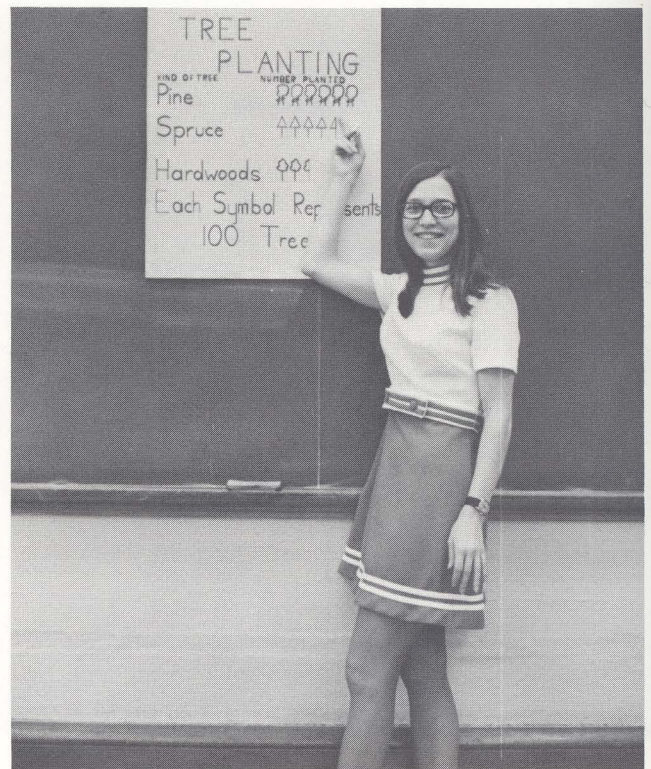 TREE
PLANTING
KIND OF TREE NUMBER PLANTED
Pine
Spruce
Hardwoods
Each Symbol Rep sents
100 Tree